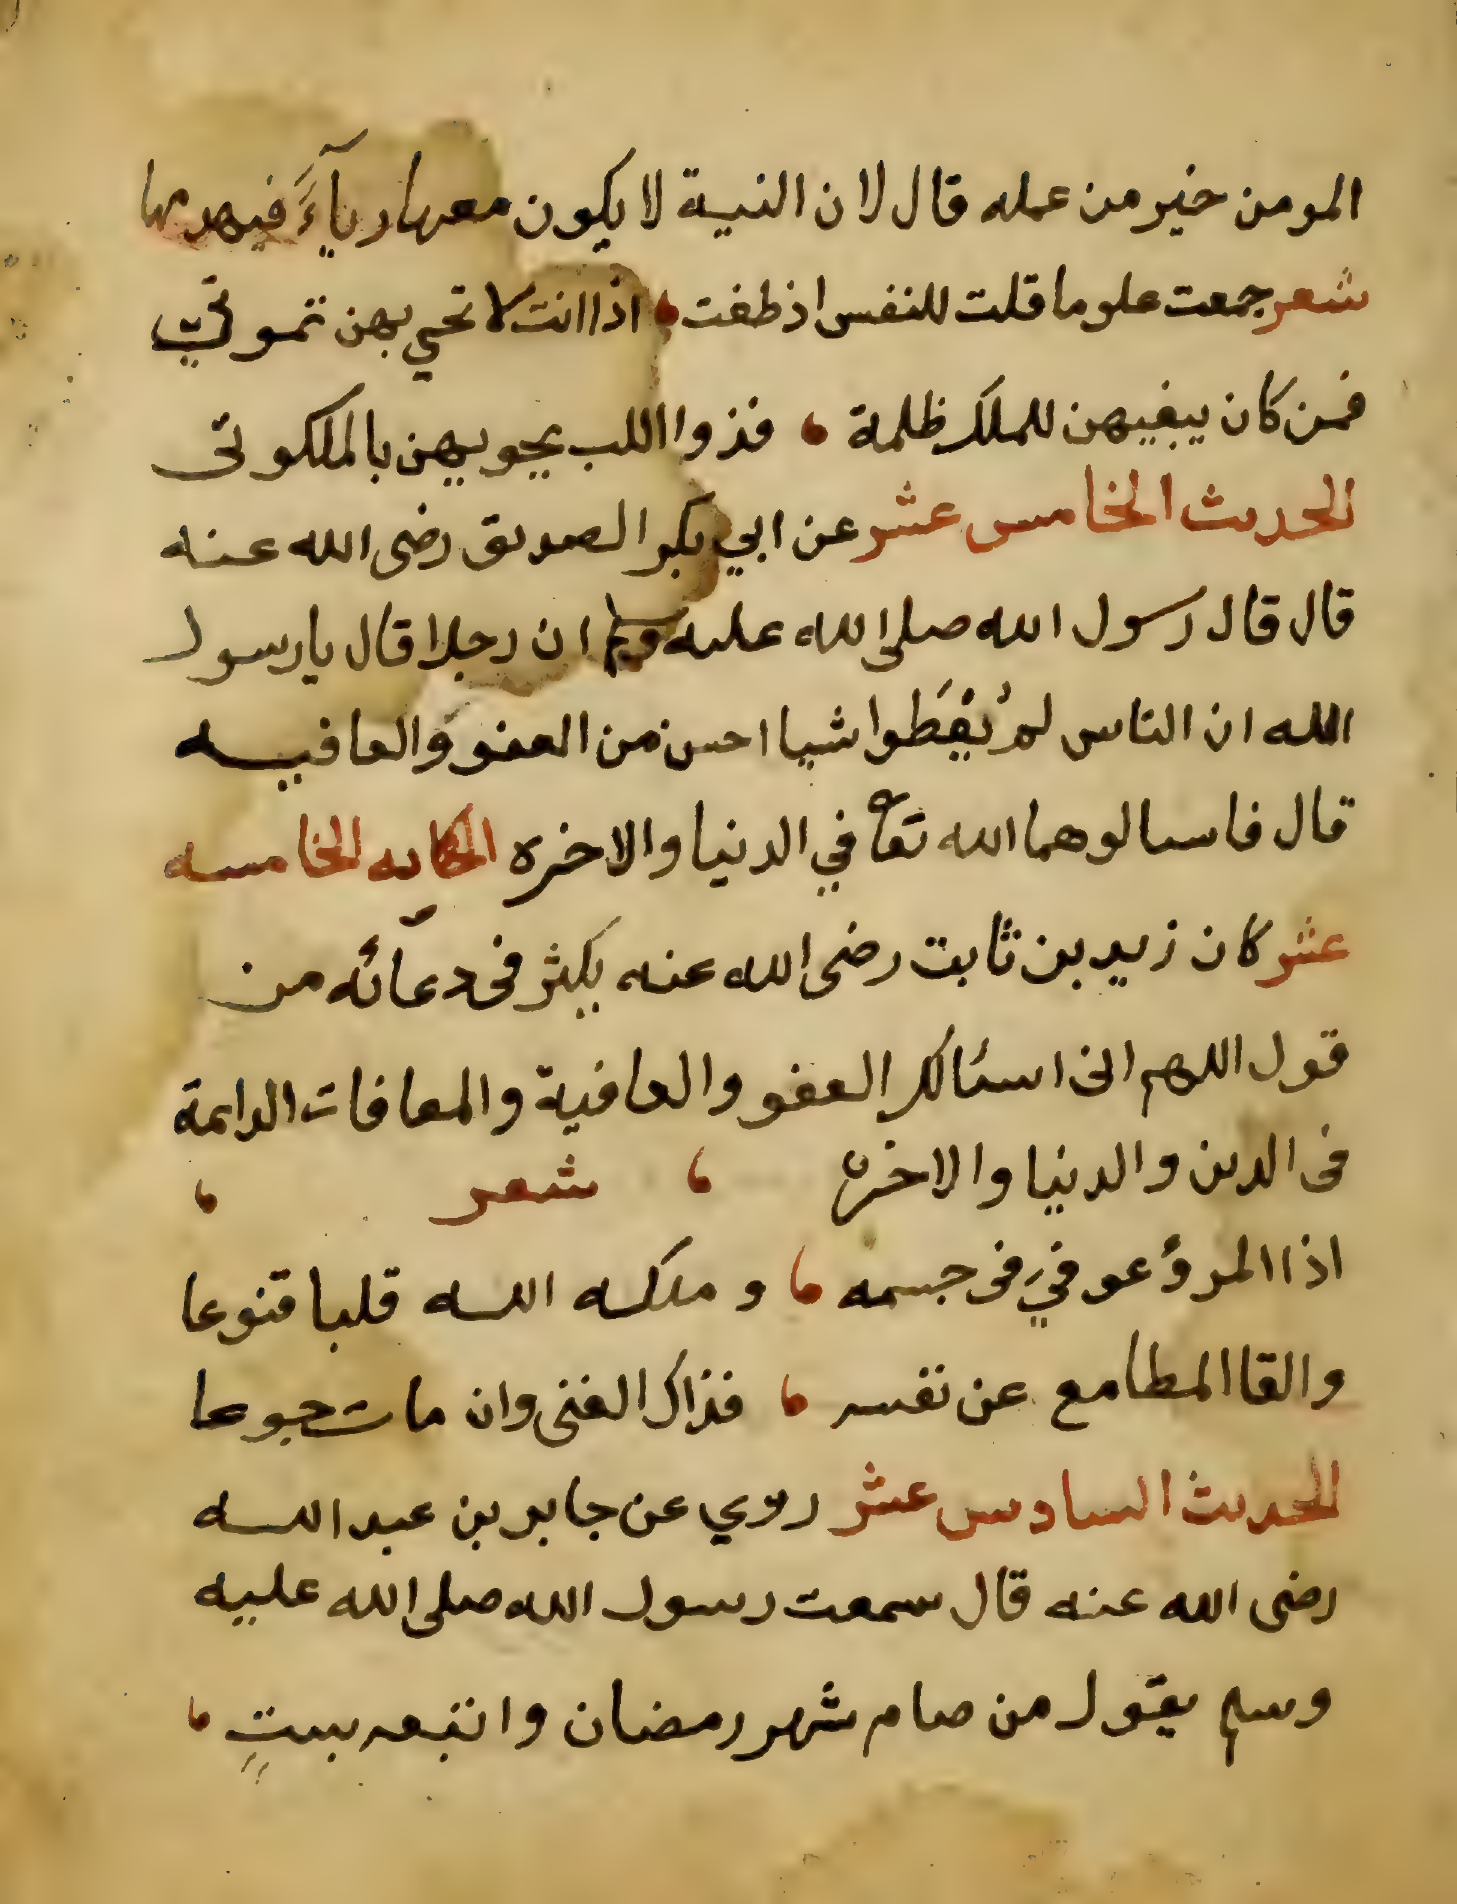 المومن خير من عمله قال لان النية لا يكون معها رياءً فيهدمها
شعر جمعت علوما قلت للنفس اذ طغت ، اذا انت لا تحي بهن تموتي
فمن كان يبغيهن للملك ظلمة ، فذوا اللب يحويهن بالملكوتى
الحديث الخامس عشر عن ابي بكر الصديق رضى الله عنه
قال قال رسول الله صلى الله عليه وسلم ان رجلا قال يا رسول
الله ان الناس لم يُعْطَوا شيا احسن من العفو والعافيه
قال فاسالوهما الله تعا في الدنيا والاخره الحكايه الخامسه
عشر كان زيد بن ثابت رضى الله عنه يكثر فى دعائه من
قول اللهم انى اسئالك العفو والعافية والمعافات الدايمة
فى الدين والدنيا والاخره ، شعر ،
اذا المرؤ عوفي فى جسمه ، وملكه الله قلبا قنوعا
والقا المطامع عن نفسه ، فذاك الغنى وان مات جوعا
الحديث السادس عشر روي عن جابر بن عبد الله
رضى الله عنه قال سمعت رسول الله صلى الله عليه
وسلم يقول من صام شهر رمضان واتبعه بستٍ ،